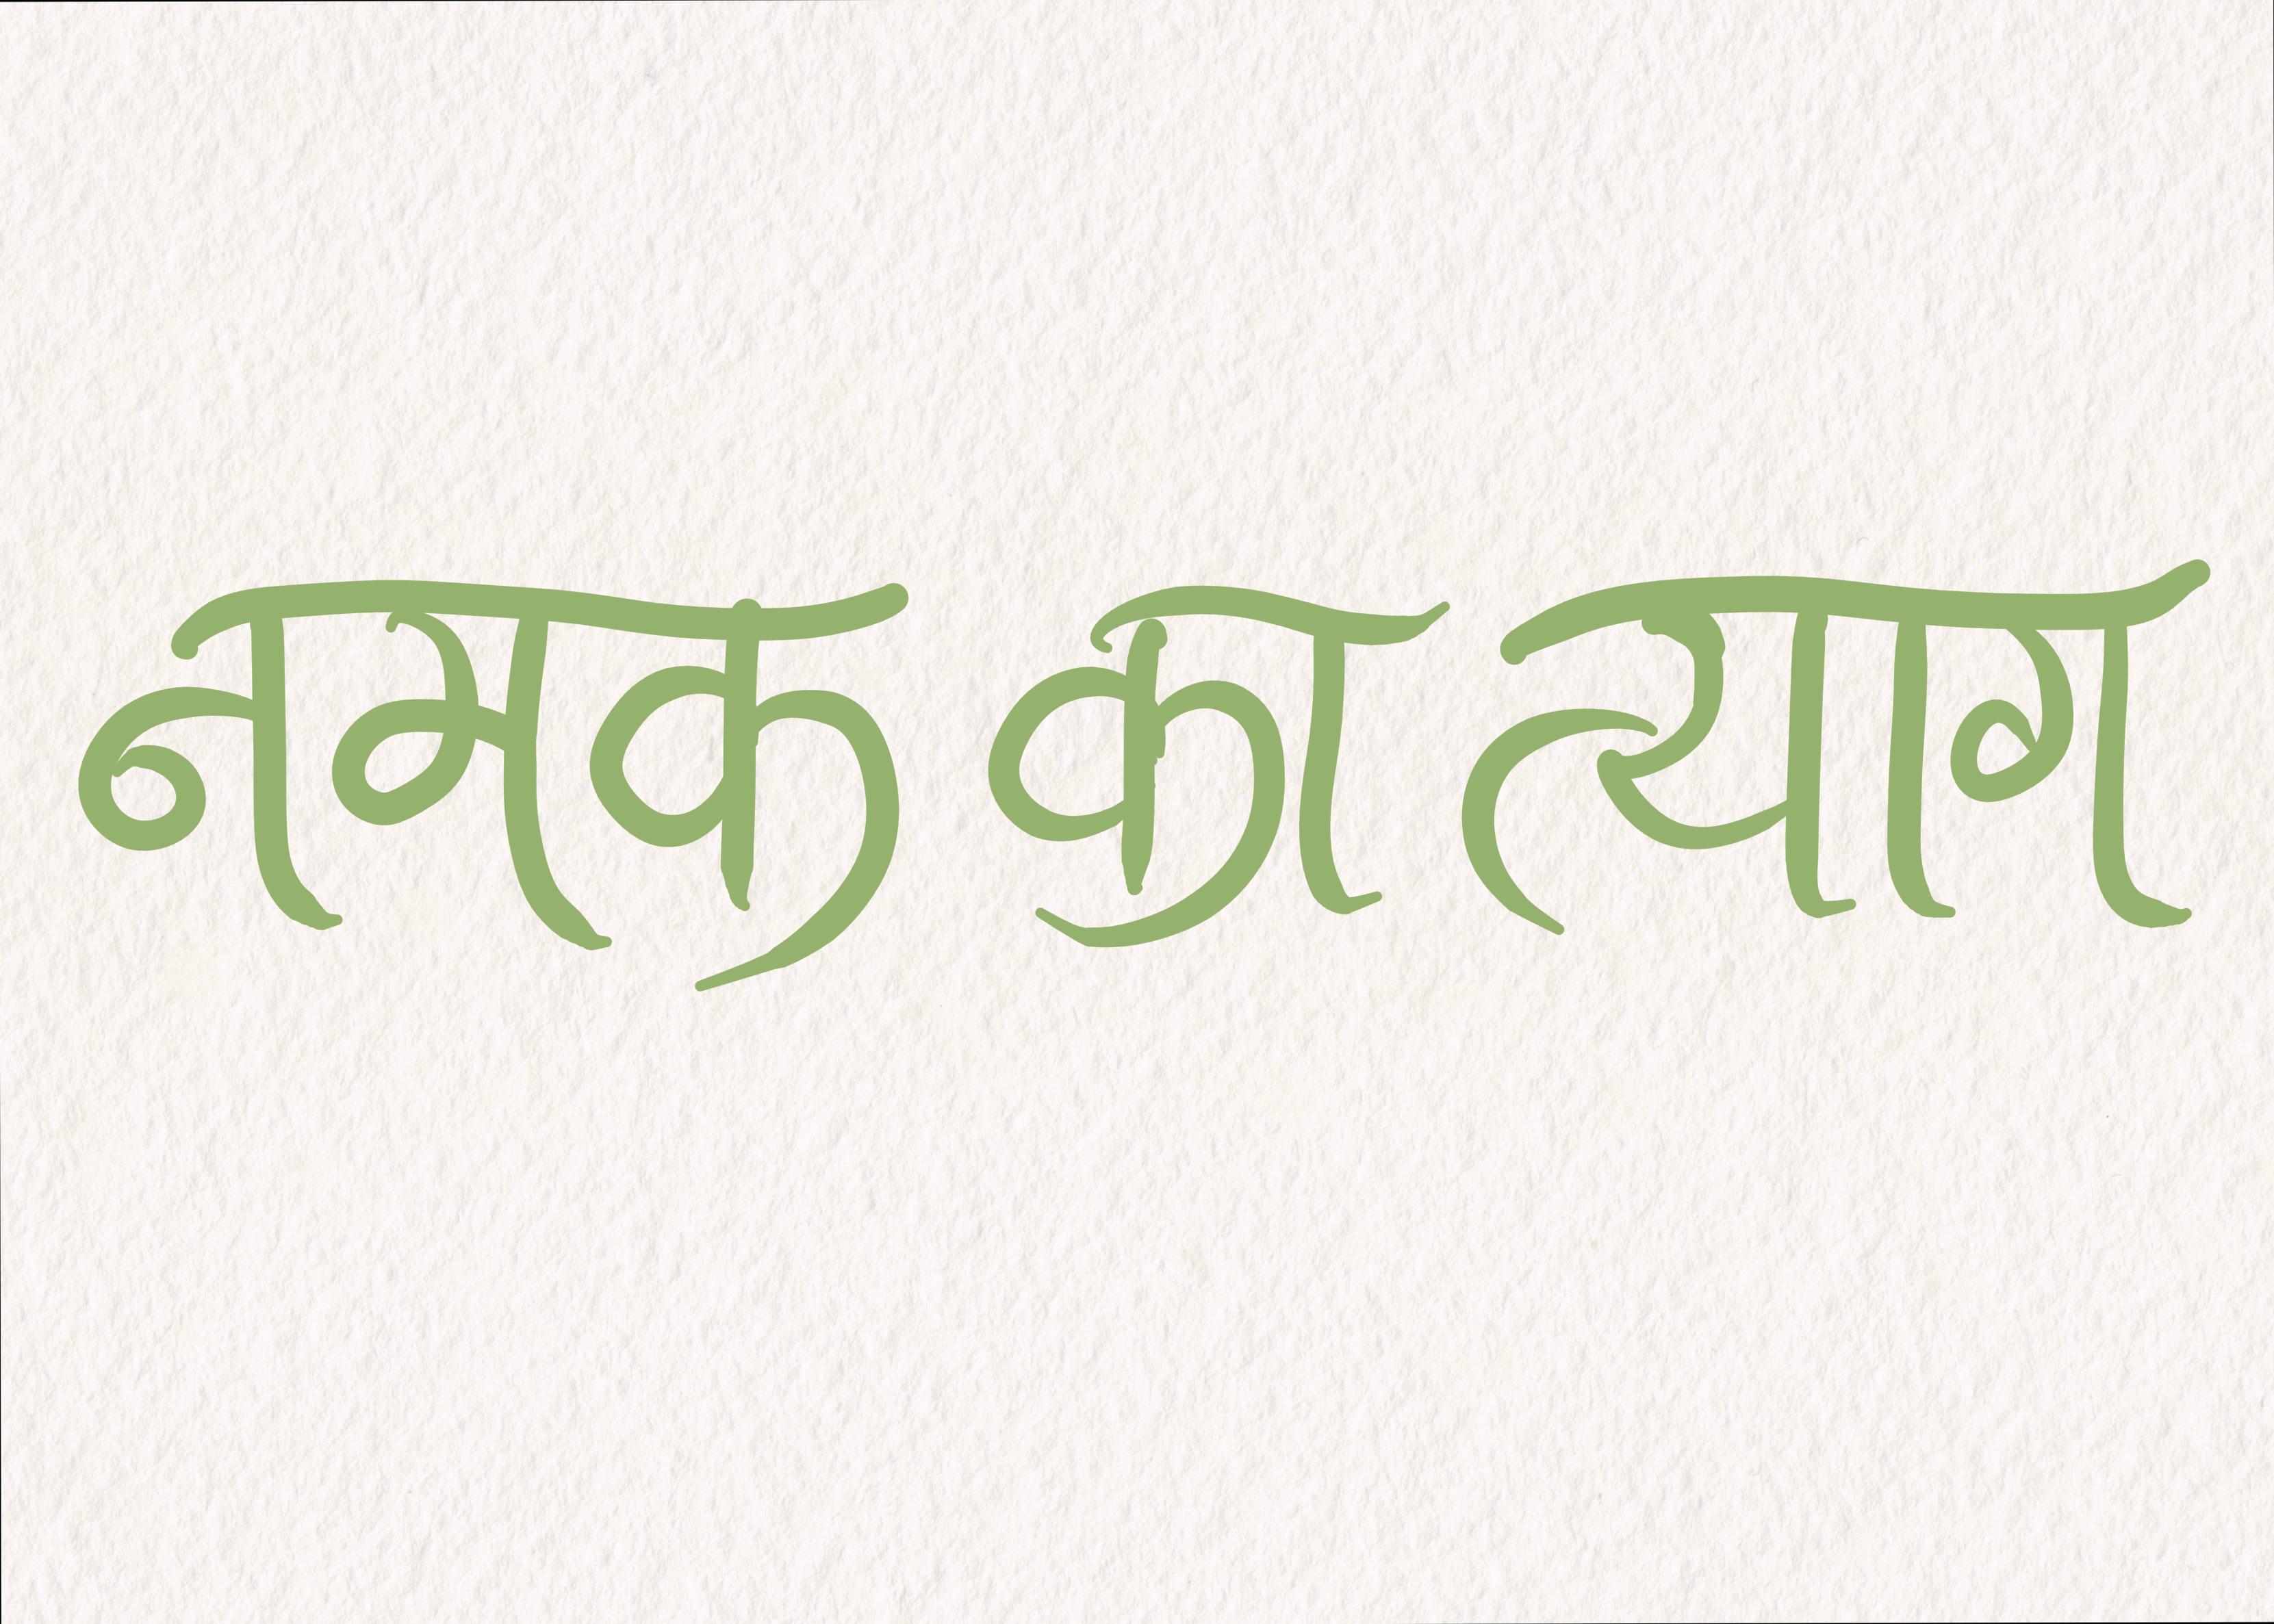 नमक का त्याग